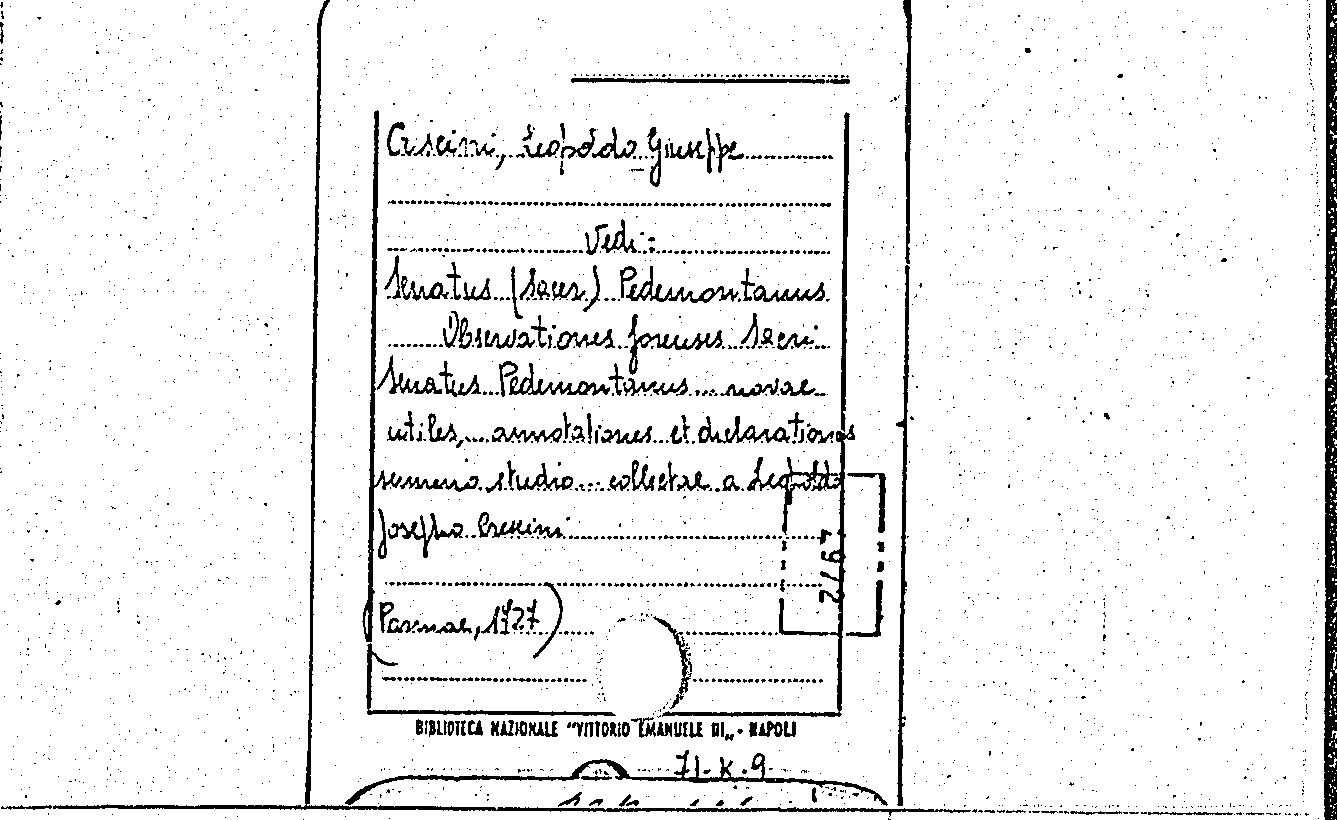 Crescini, Leopoldo Giuseppe
Vedi:
Senatus (Sacer) Pedemontanus
Observationes forenses Sacri
Senatus Pedemontanus... novae
utiles,... annotationes et declarationes
summo studio... collectae a Leopoldo
Josepho Crescini
(Parmae, 1727)
2/67
BIBLIOTECA NAZIONALE "VITTORIO EMANUELE III„ - NAPOLI
71-K-9